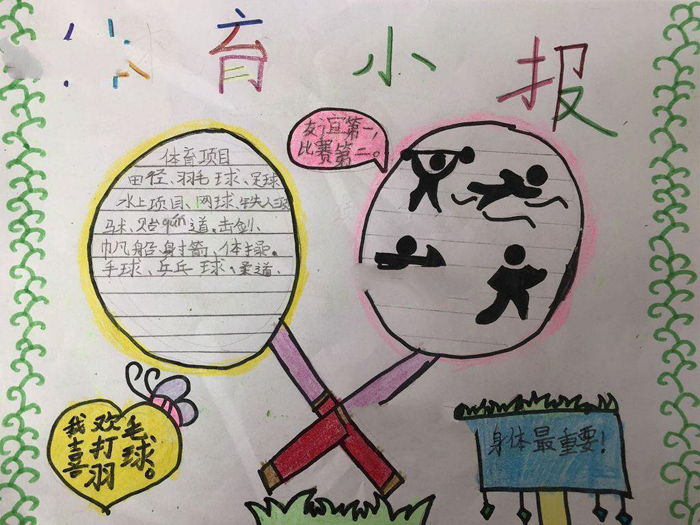 育小报
友谊第一，
比赛第二。
体育项目
田径、羽毛球、足球
水上项目、网球、铁人三
马术、跆quán道。击剑、
帆船、射箭、体操。
手球、乒乓球、柔道、
我喜欢打羽毛球。
身体最重要！